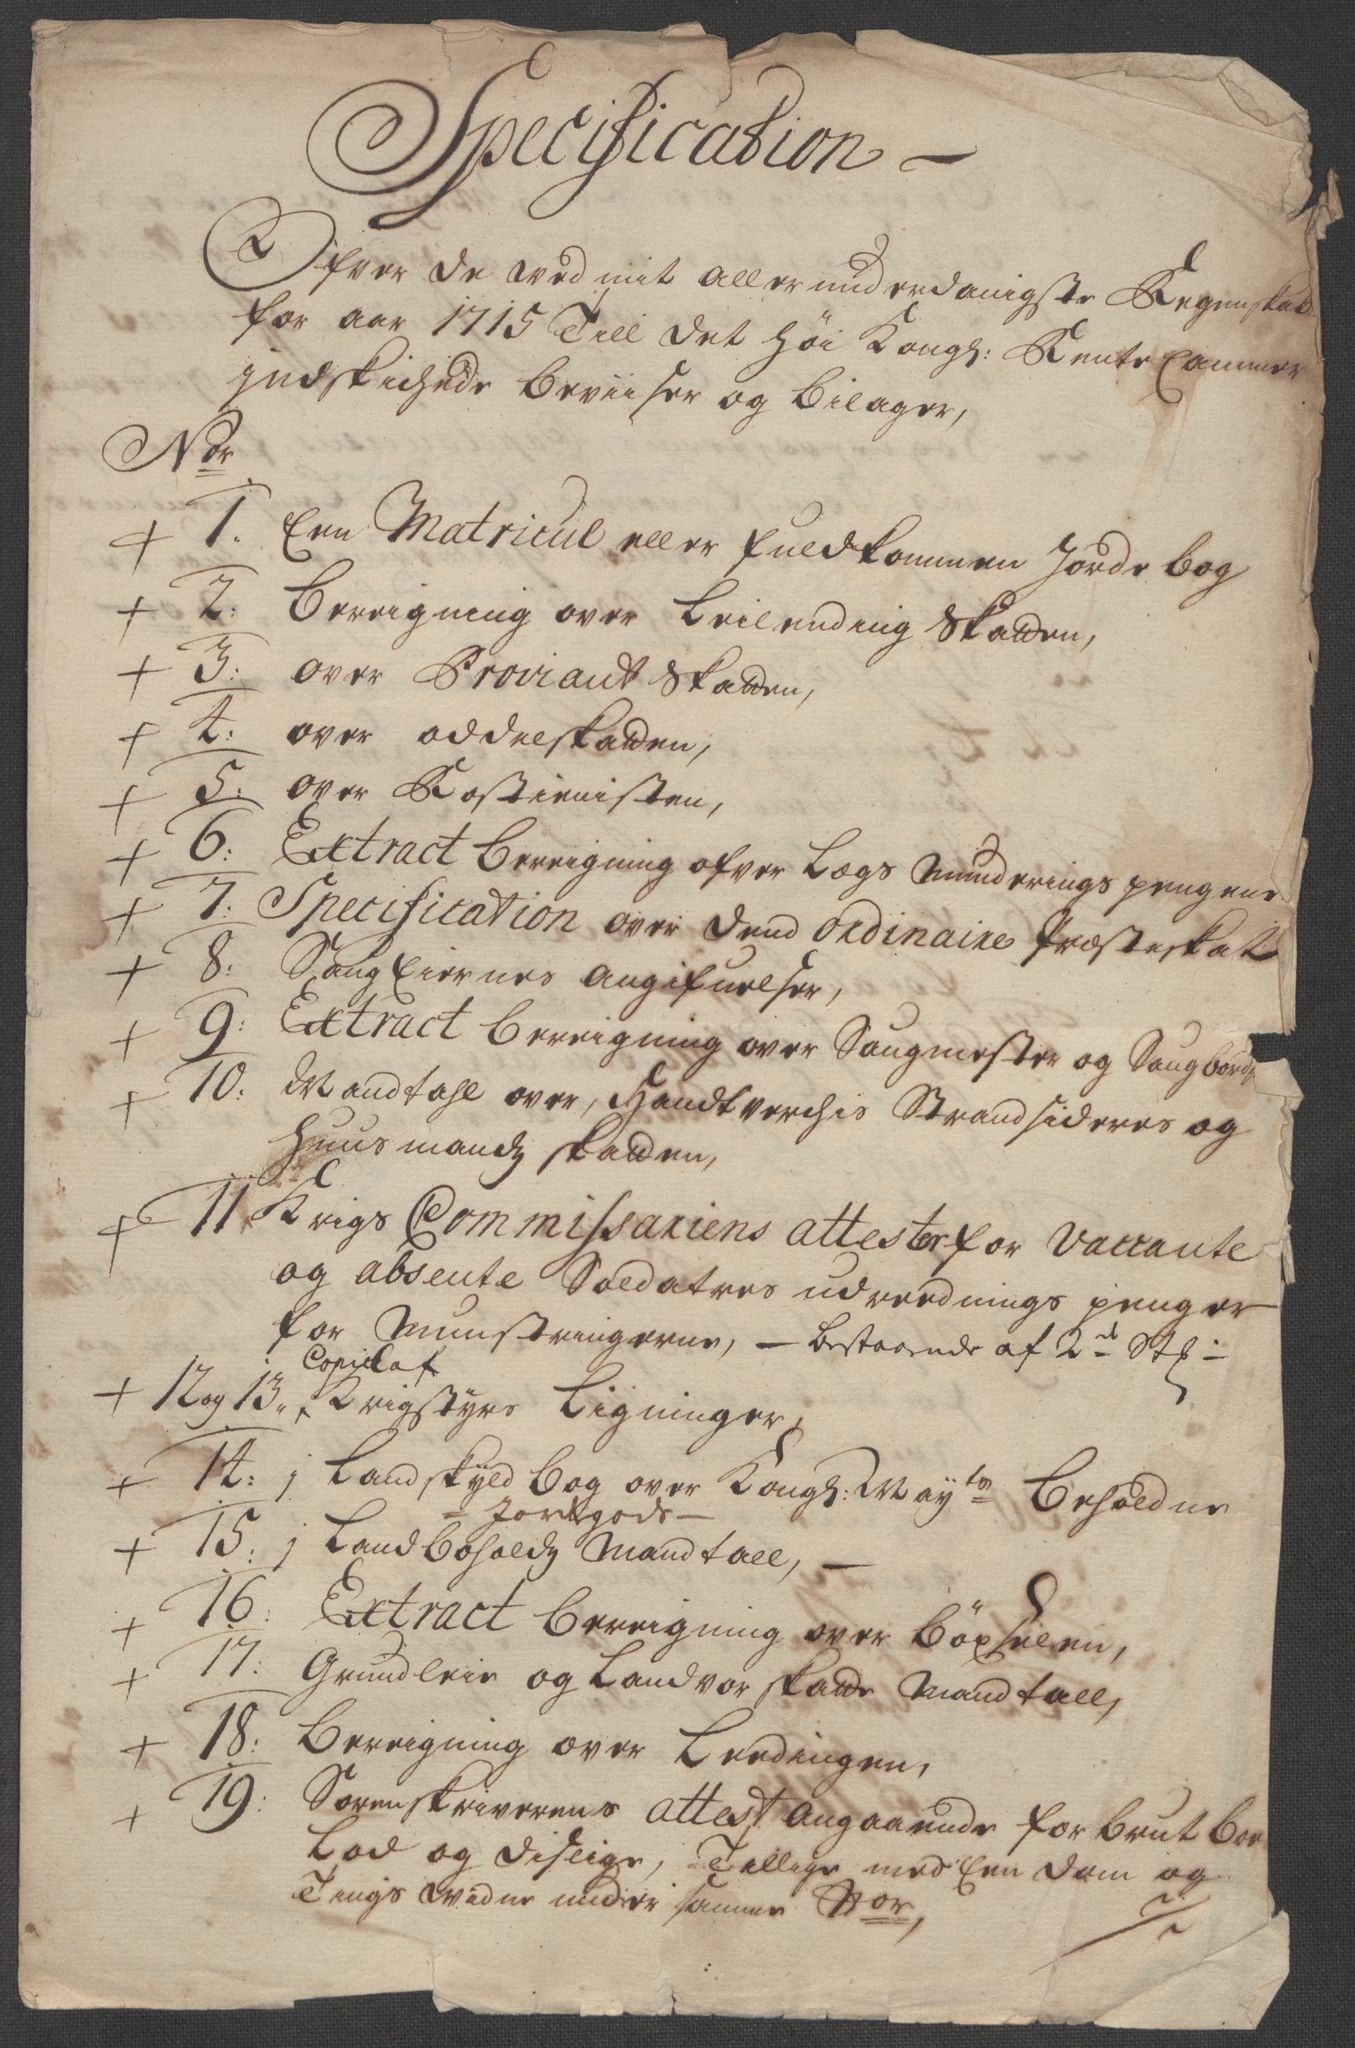 Specification
Ofver de ved mit allerunderdanigste Regenskab
for aar 1715 Till det höi Kongl: Rente Cammer
indskichede Beviiser og Bilager,
Nor
+ 1. Een Matricul eller fuldkommen Jordebog
+ 2: Bereigning over Leilending Skatten,
+ 3: over Proviant Skatten,
+ 4: over oddelskatten,
+ 5: over Rostienisten,
+ 6: Extract Bereigning ofver Legs Munderings pengene
+ 7: Specification over dend ordinaire Præsteskat
+ 8: Saug Eiernes Angifvelser,
+ 9: Extract Bereigning over Saugmester og Saugbords
+ 10: Mandtahl over, Handtverchis Strandsideres og
Huusmandz skatten,
+ 11 Krigs Commissariens attester for vaccante
og absente Soldatres udreednings penger
for Munstringerne, – bestaaende af 2de St:
Copie af
+ 12 og 13. Krigstyrs Ligninger,
+ 14: j Landskyld bog over Kongl: Mayts Beholdne
– Jordegods –
+ 15: j Landboholdz Mandtall, –
+ 16: Extract Bereigning over Böxselen,
+ 17: Grundleie og Landvor skatte Mandtall,
+ 18: Bereigning over Leedingen,
+ 19: Sorenskriverens attest angaaende forbrut Boe
Lod og dislige, Tillige med Een dom og
Tings vidne under samme Nor,